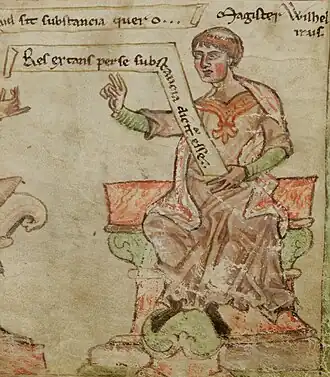 sit substancia quero...
Magister Wilhel
mus.
Res extans per se substancia dicit esse.